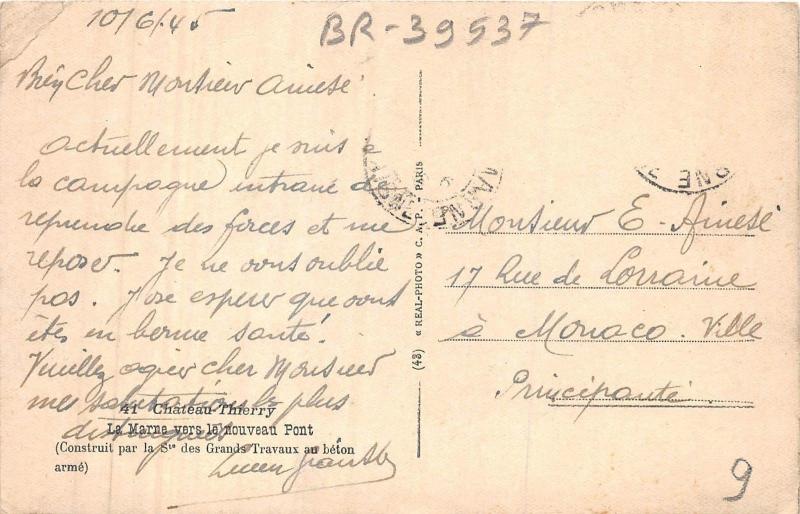 10/6/45
BR-39537
Bien Cher Monsieur Aimesé
Actuellement je suis à
la campagne entrane de
reprendre des forces et me
reposer. Je ne vous oublié
pas. J'ose esperer que vous
êtes en bonne santé!
Veuillez agier cher Monsieur
mes salutations les plus
distingués
41 Château-Thierry
La Marne vers le nouveau Pont
(Construit par la Sté des Grands Travaux au béton
armé)
(43) « REAL-PHOTO » C. A. P. PARIS
Monsieur E-Aimesé
17 Rue de Lorraine
à Monaco. Ville
Principauté
9